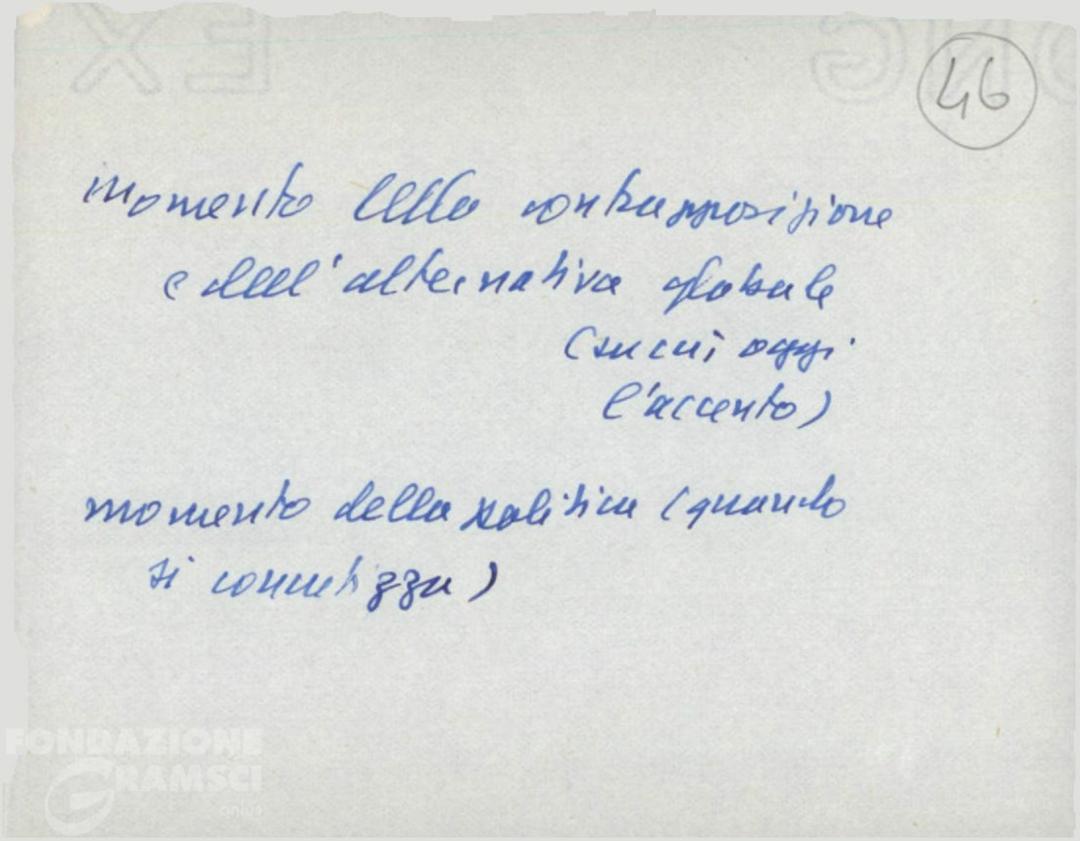 46
momento della contrapposizione
e dell'alternativa globale
(su cui oggi
l'accento)
momento della politica (quando
si concretizza)
FONDAZIONE
GRAMSCI
onlus